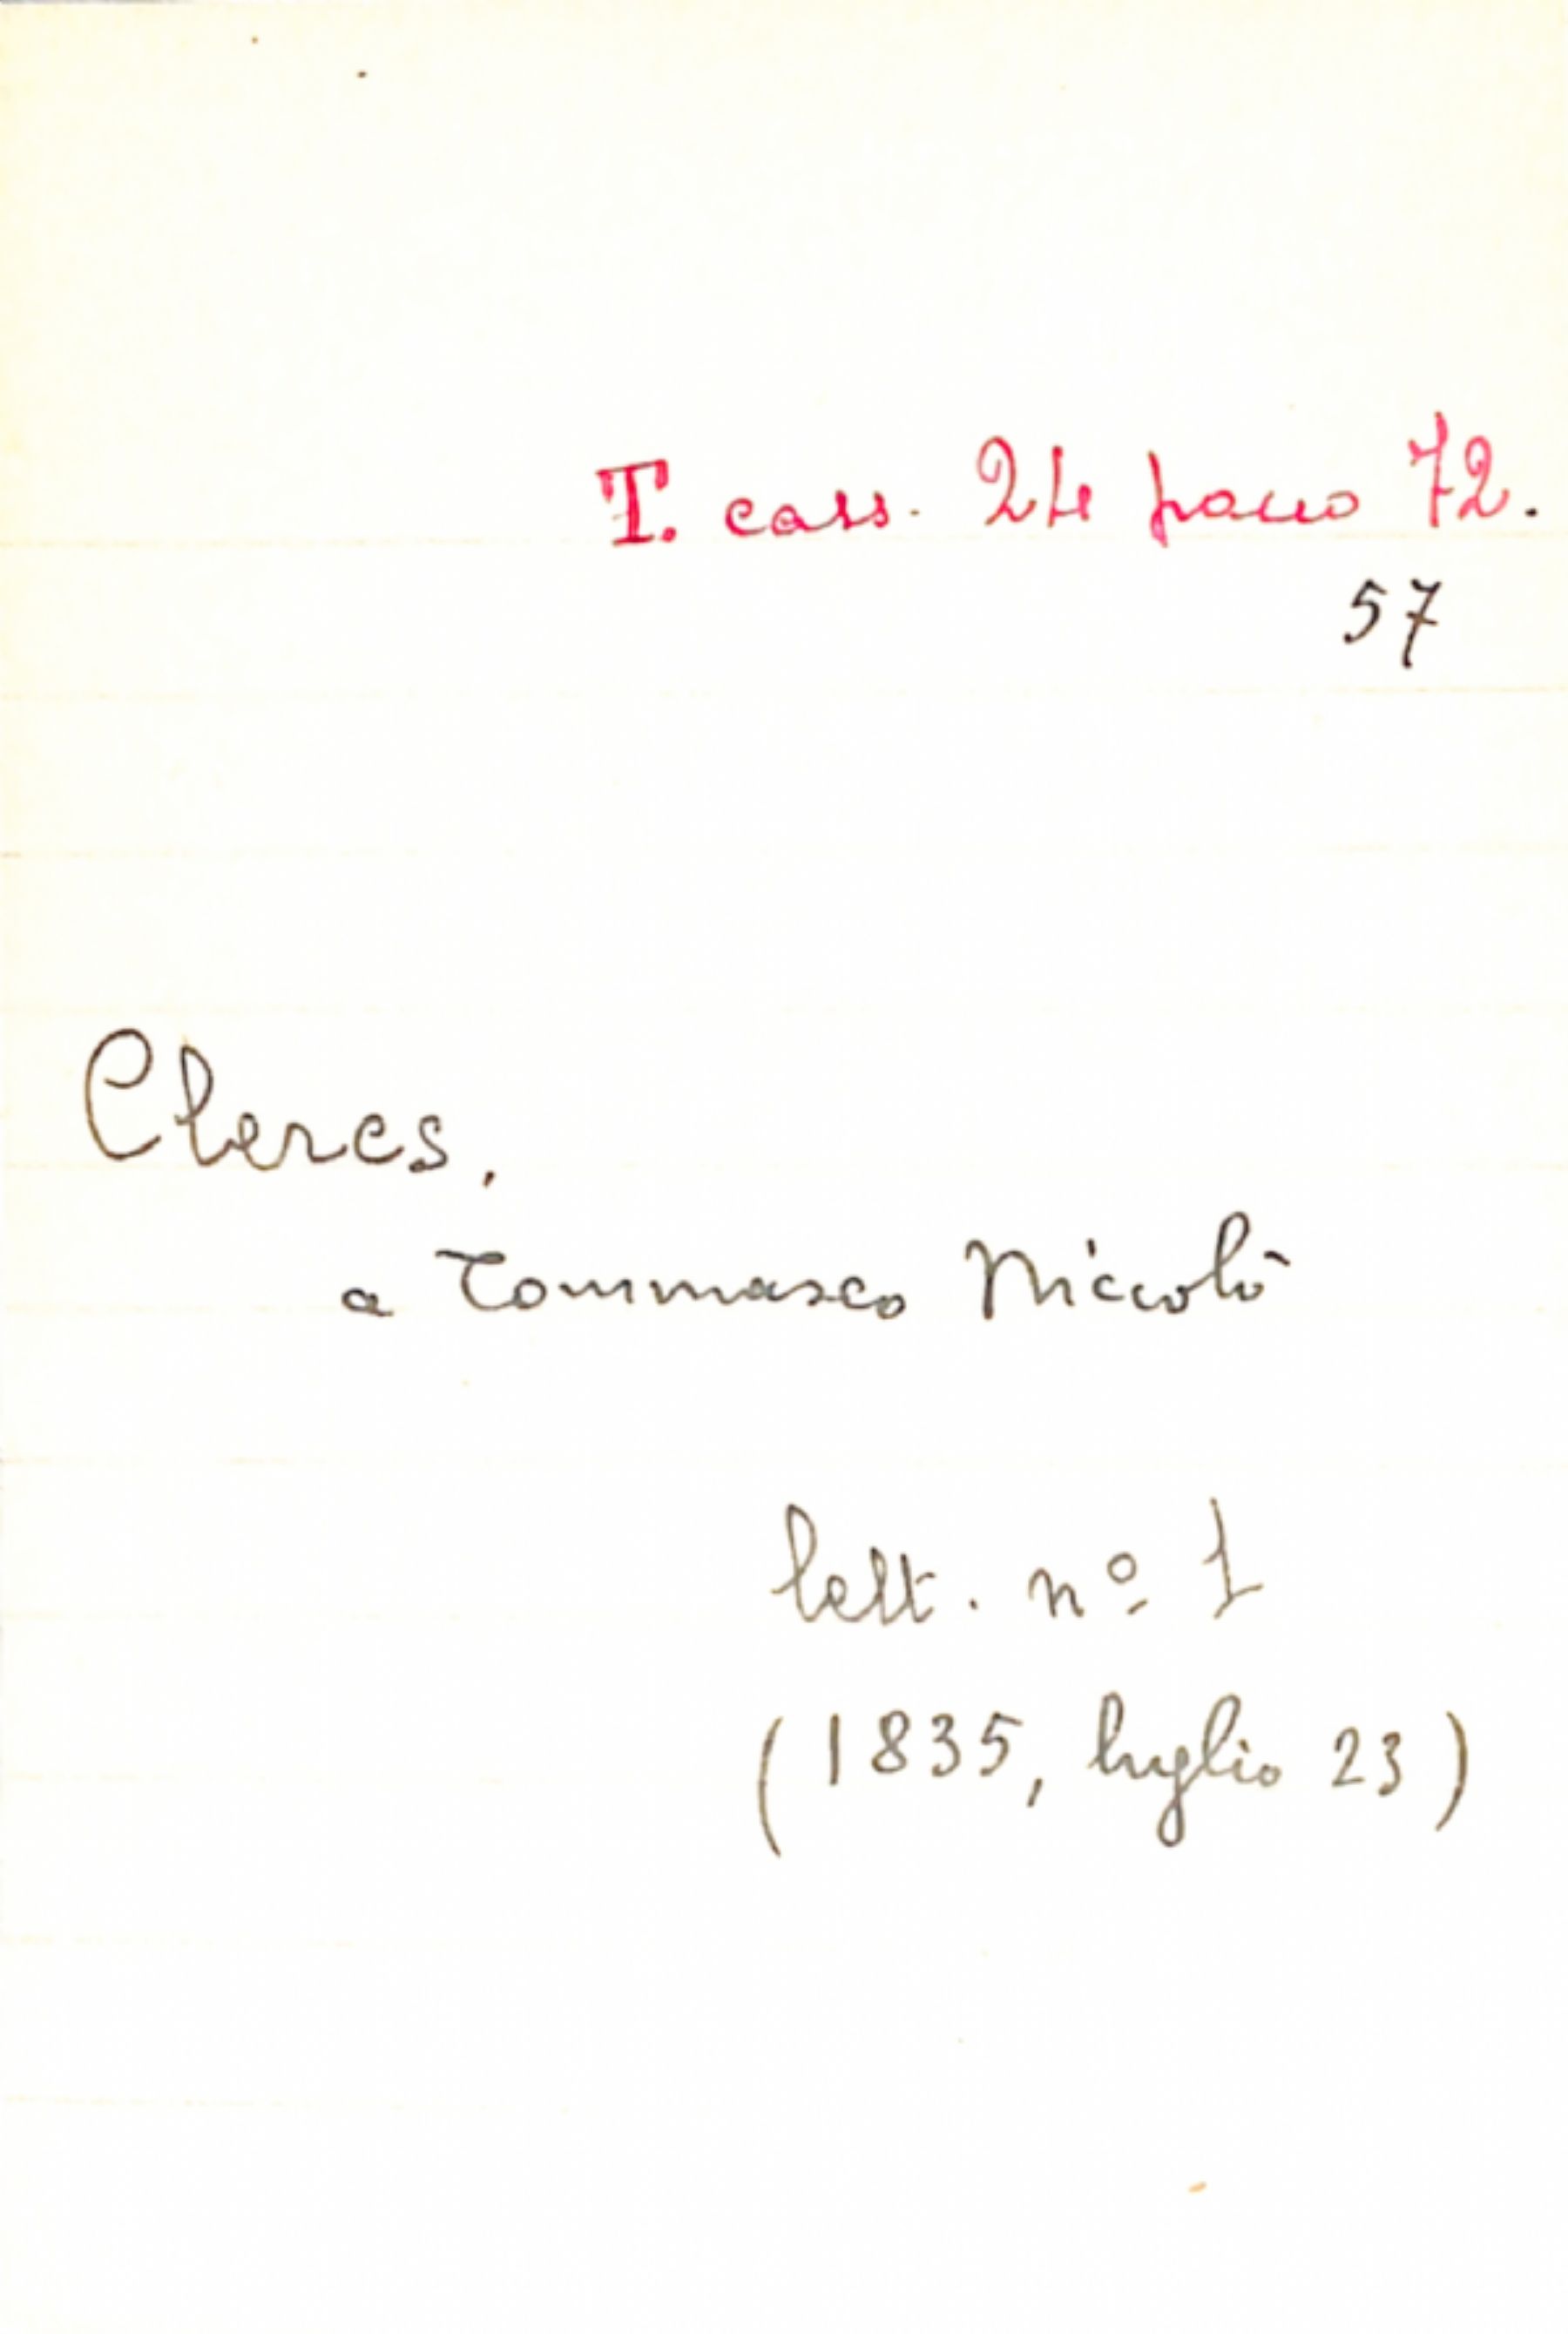 T. cass. 24 pacco 72.
57
Clercs,
a Tommaseo Niccolò
lett. nº 1
(1835, luglio 23)